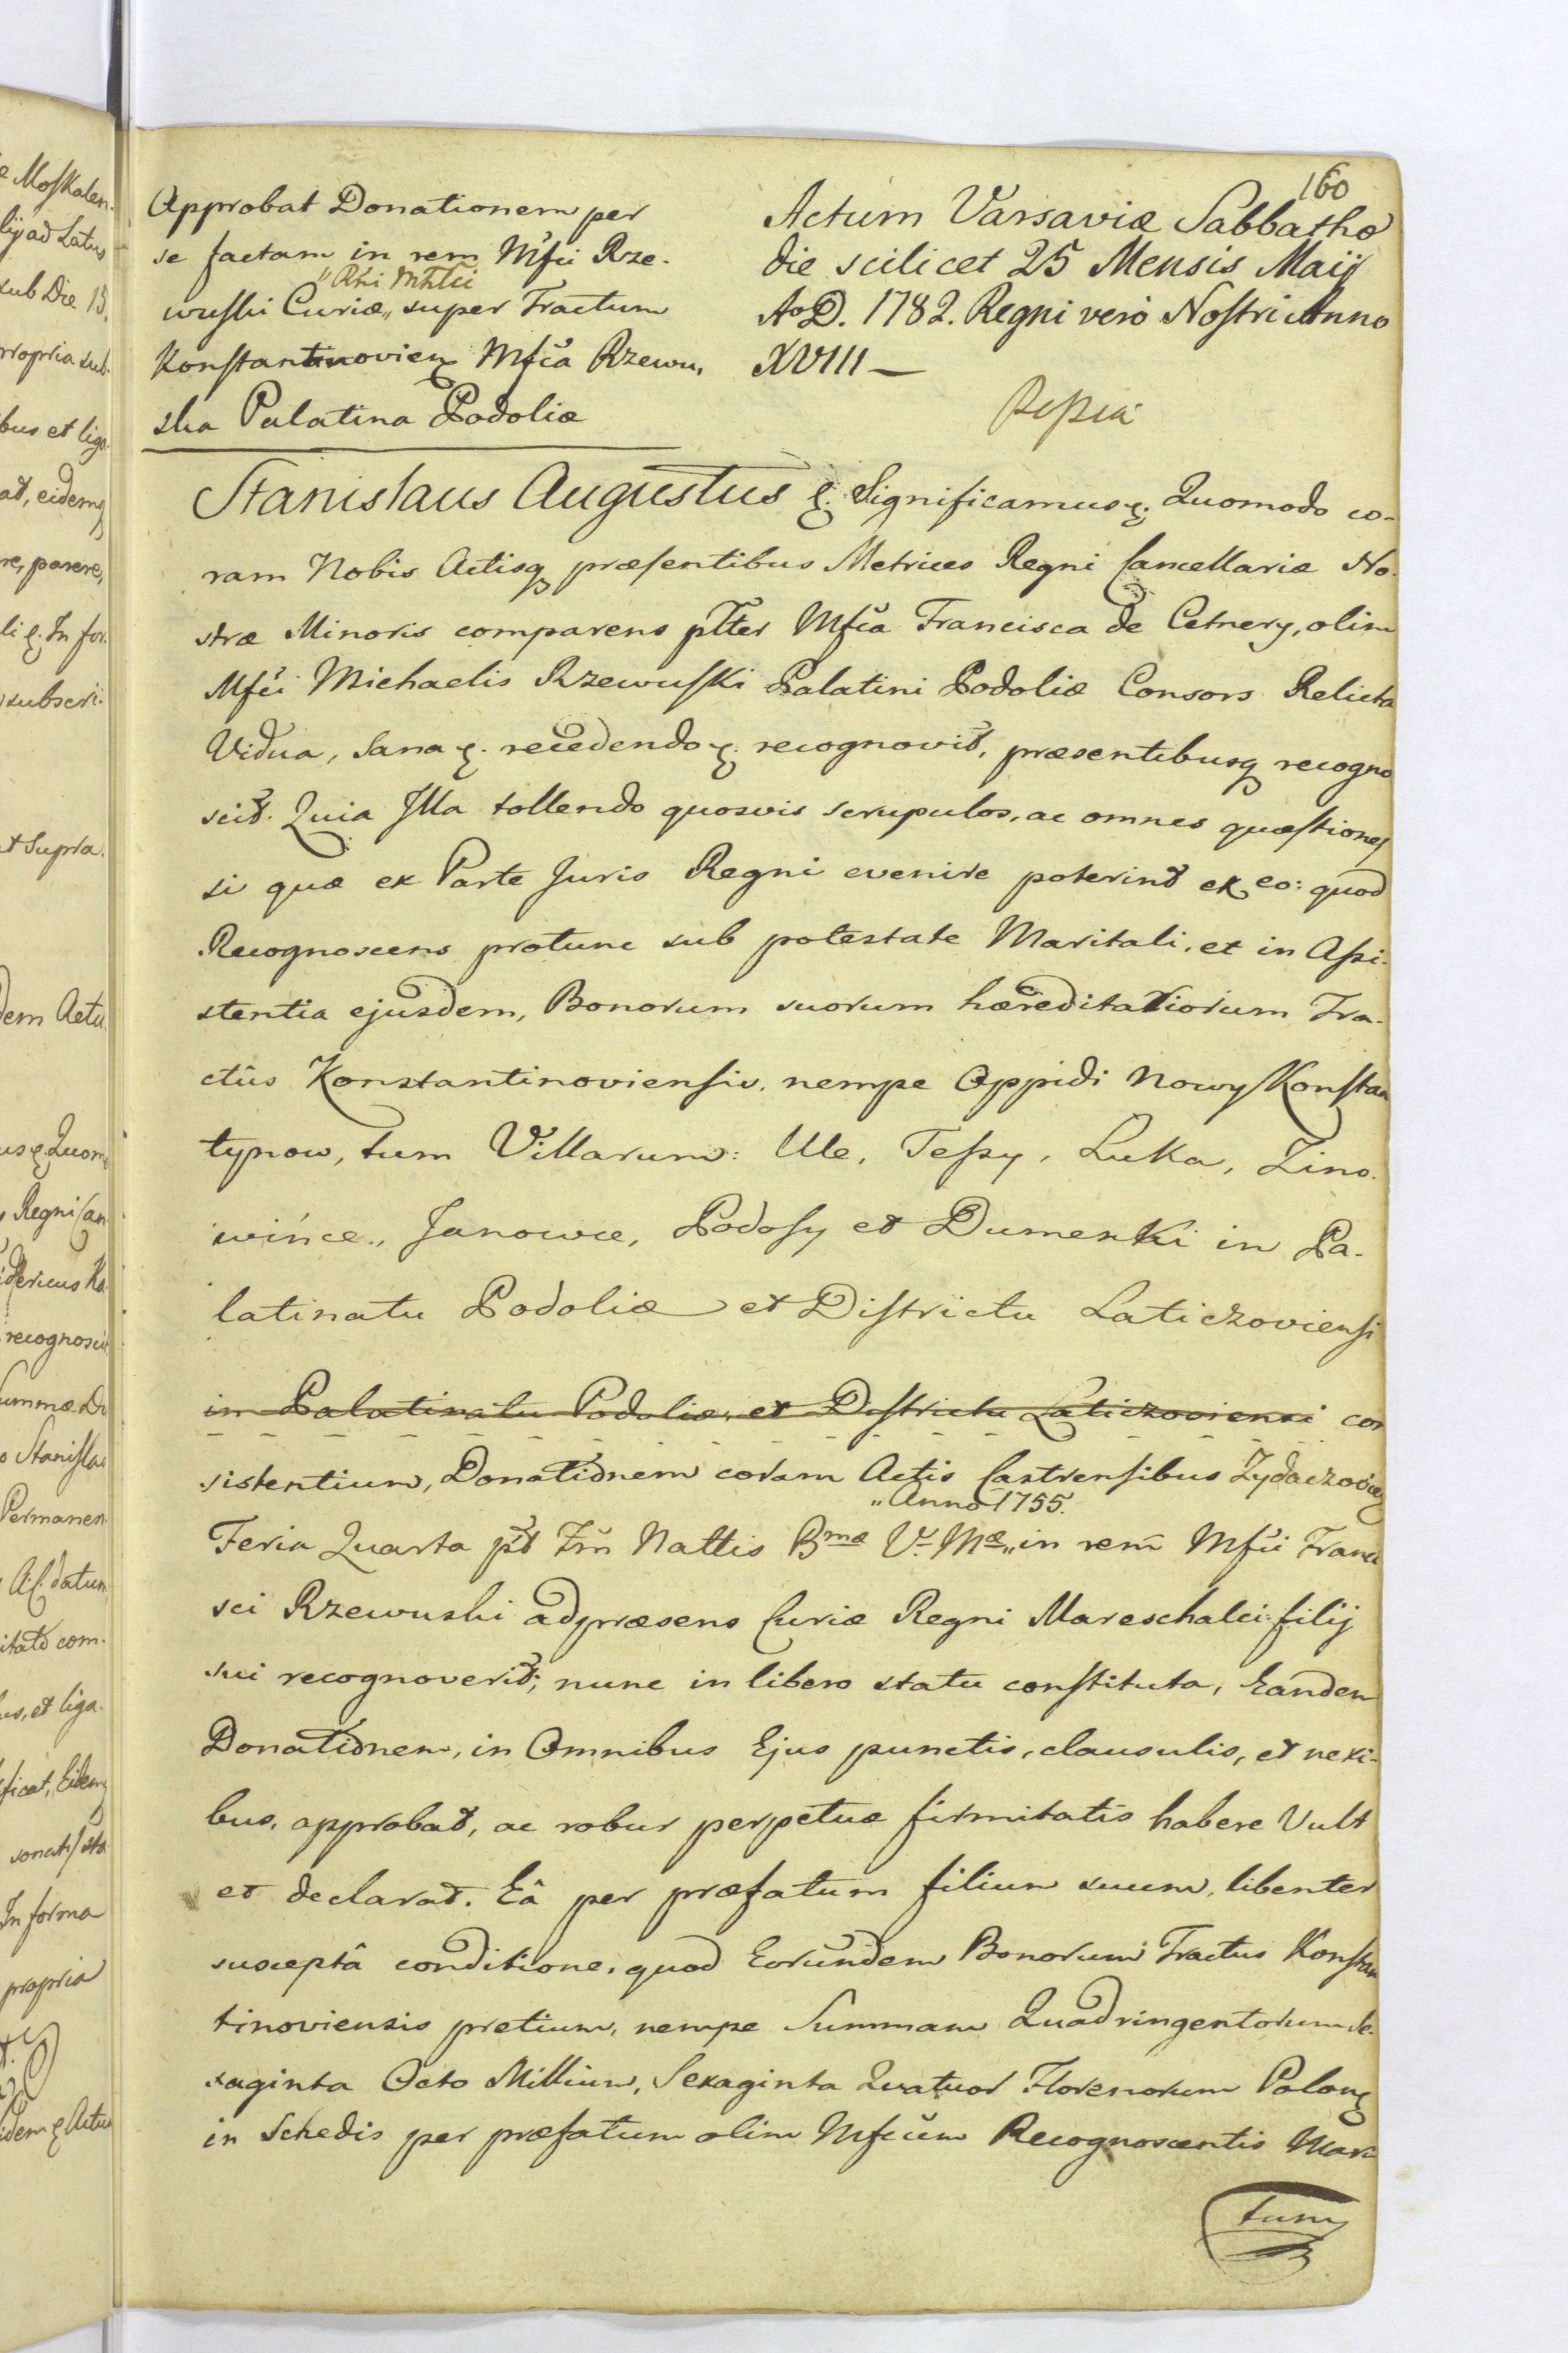 160
Approbat Donationem per
se factam in rem Mfci Rze-
"Rni Mhlci
wuski Curiæ,, super Tractum
Konstantinovien Mfca Rzewu,
ska Palatina Podoliæ
Actum Varsaviæ Sabbatho
die scilicet 25 Mensis Maij
AoD. 1782. Regni vero Nostri Anno
XVIII —
Stanislaus Augustus &. Significamus &. Quomodo co-
ram Nobis Actisq præsentibus Metrices Regni Cancellariæ No-
stræ Minoris comparens pltter Mfca Francisca de Cetnery, olim
Mfci Michaelis Rzewuski Palatini Podoliæ Consors Relicta
Vidua, Sana &. recedendo &. recognovit, præsentibusq recogno
scit. Quia Illa tollendo quosvis scrupulos, ac omnes quæstiones
si quæ ex Parte Juris Regni evenire poterint ex eo: quod
Recognoscens protunc sub potestate Maritali, et in Assi-
stentia ejusdem, Bonorum suorum hæreditariorum Tra-
ctûs Konstantinoviensis, nempe Oppidi Nowy Konstan
tynow, tum Villarum: Ule, Tessy, Luka, Zino-
wińce,, Janowce, Podosy et Dumenki in Pa-
latinatu Podoliæ et Districtu Laticzoviensi
in Palatinatu Podoliæ, et Districtu Laticzoviensi con
sistentium, Donationem coram Actis Castrensibus Zydaczovien
"Anno 1755.
Feria Quarta pt Fm Nattis Bmæ V. Mæ,, in rem Mfci Franci
sci Rzewuski adpræsens Curiæ Regni Mareschalci filij
sui recognoverit; nunc in libero statu constituta, Eandem
Donationem, in Omnibus Ejus punctis, clausulis, et nexi-
bus, approbat, ac robur perpetuæ firmitatis habere Vult
et declarat. Eâ per præfatum filium suum, libenter
susceptâ conditione, quod Eorundem Bonorum Tractus Konstan
tinoviensis pretium, nempe Summam Quadringentorum Se-
xaginta Octo Millium, Sexaginta Quatuor Florenorum Polon
in Schedis per præfatum olim Mfcum Recognoscentis Mari
tum